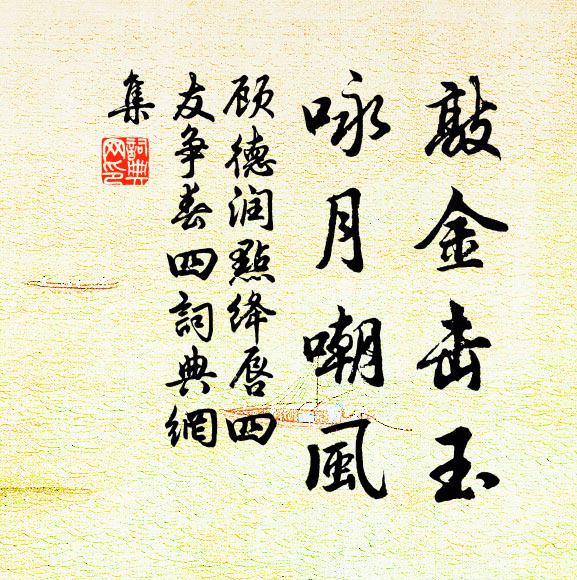 敲金击玉
咏月嘲風
顾德润點绛唇四
友争春四詞典網
集
詞典
网印